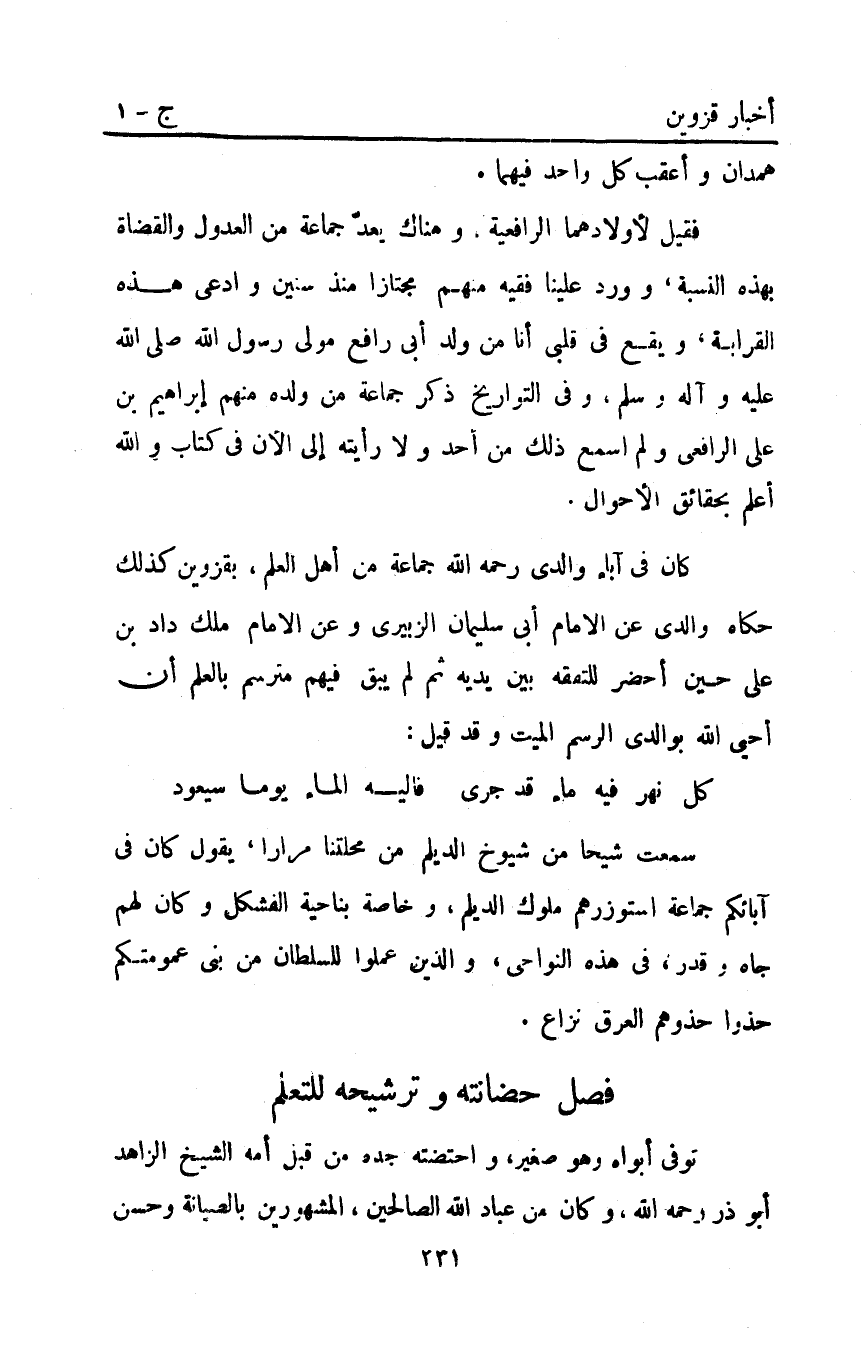 أخبار قزوين ج - ١
همدان و أعقب كل واحد فيهما .
فقيل لأولادهما الرافعية ، و هناك يعدّ جماعة من العدول والقضاة
بهذه النسبة ، و ورد علينا فقيه منهـم مجتازا منذ سنين و ادعى هـــذه
القرابـة ، و يقـع فى قلبى أنا من ولد أبى رافع مولى رسول الله صلى الله
عليه و آله و سلم ، و فى التواريخ ذكر جماعة من ولده منهم إبراهيم بن
على الرافعى و لم اسمع ذلك من أحد و لا رأيته إلى الآن فى كتاب و الله
أعلم بحقائق الأحوال .
كان فى آباء والدى رحمه الله جماعة من أهل العلم ، بقزوين كذلك
حكاه والدى عن الامام أبى سليمان الزبيرى و عن الامام ملك داد بن
على حـين أحضر للتفقه بين يديه ثم لم يبق فيهم مترسم بالعلم أن
أحيى الله بوالدى الرسم الميت و قد قيل :
كل نهر فيه ماء قد جرى فاليــه المـاء يومـا سيعود
سمعت شيحا من شيوخ الديلم من محلتنا مرارا ، يقول كان فى
آبائكم جماعة استوزرهم ملوك الديلم ، و خاصة بناحية الفشكل و كان لهم
جاه و قدر ، فى هذه النواحى ، و الذين عملوا للسلطان من بنى عمومتـكم
حذوا حذوهم العرق نزاع .
فصل حضانته و ترشيحه للتعلم
توفى أبواه وهو صغير، و احتضنته جده من قبل أمه الشيخ الزاهد
أبو ذر رحمه الله ، و كان من عباد الله الصالحين ، المشهورين بالصيانة وحسن
٢٣١